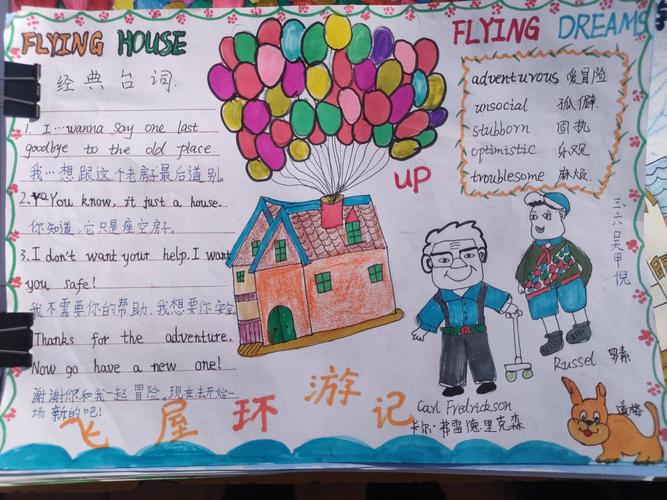 FLYING HOUSE
经典台词.
1. I…wanna say one last
goodbye to the old place.
我…想跟这个老房子最后道别。
2. You know, it just a house.
你知道,它只是座空房子。
3. I don't want your help. I want
you safe!
我不需要你的帮助,我想要你安全
Thanks for the adventure.
Now go have a new one!
谢谢你和我一起冒险。现在去开始一
场新的吧!
飞屋环游记
UP
FLYING DREAMS
adventurous 爱冒险
unsocial 孤僻
stubborn 固执
optimistic 乐观
troublesome 麻烦
Carl Fredrickson
卡尔·弗雷德里克森
Russel 罗素
道格